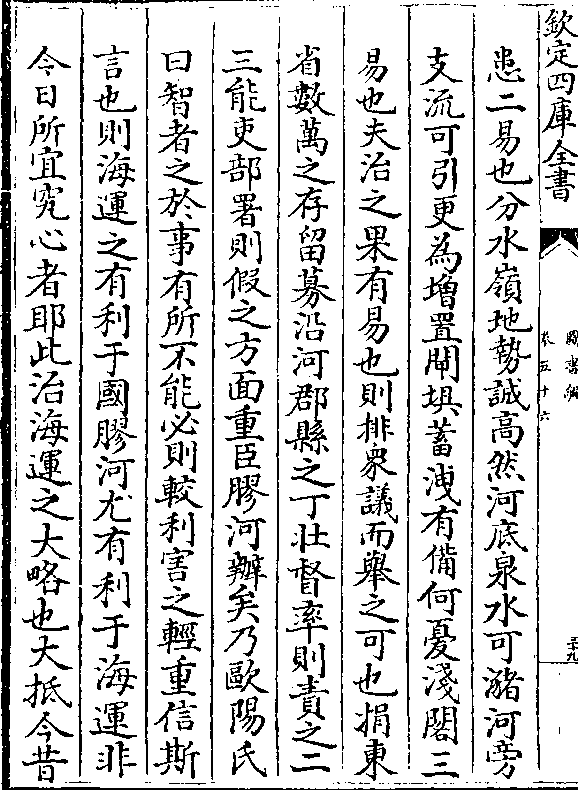 欽定四庫全書
圖書編
卷五十六
三十九
患二易也分水嶺地勢誠高然河底泉水可瀦河旁
支流可引更為增置閘埧蓄洩有備何憂淺閣三
易也夫治之果有易也則排衆議而舉之可也捐東
省數萬之存留募沿河郡縣之丁壯督率則責之二
三能吏部署則假之方面重臣膠河辦矣乃歐陽氏
曰智者之於事有所不能必則較利害之輕重信斯
言也則海運之有利于國膠河尤有利于海運非
今日所宜究心者耶此治海運之大略也大抵今昔